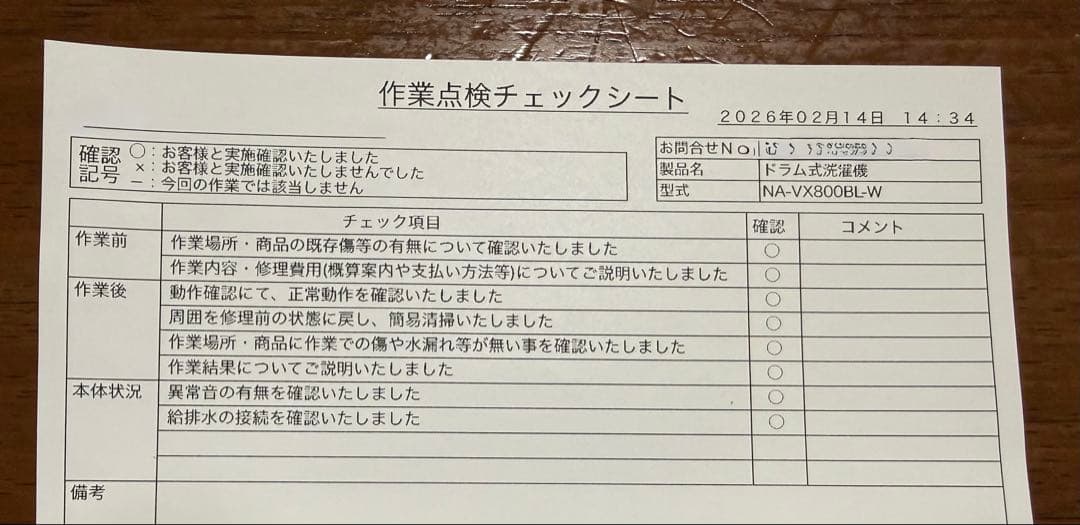 作業点検チェックシート
2026年02月14日 14:34
確認 ○：お客様と実施確認いたしました
記号 ×：お客様と実施確認いたしませんでした
－：今回の作業では該当しません
お問合せNo
製品名 ドラム式洗濯機
型式 NA-VX800BL-W
チェック項目 確認 コメント
作業前 作業場所・商品の既存傷等の有無について確認いたしました ○
作業内容・修理費用(概算案内や支払い方法等)についてご説明いたしました ○
作業後 動作確認にて、正常動作を確認いたしました ○
周囲を修理前の状態に戻し、簡易清掃いたしました ○
作業場所・商品に作業での傷や水漏れ等が無い事を確認いたしました ○
作業結果についてご説明いたしました ○
本体状況 異常音の有無を確認いたしました ○
給排水の接続を確認いたしました ○
備考